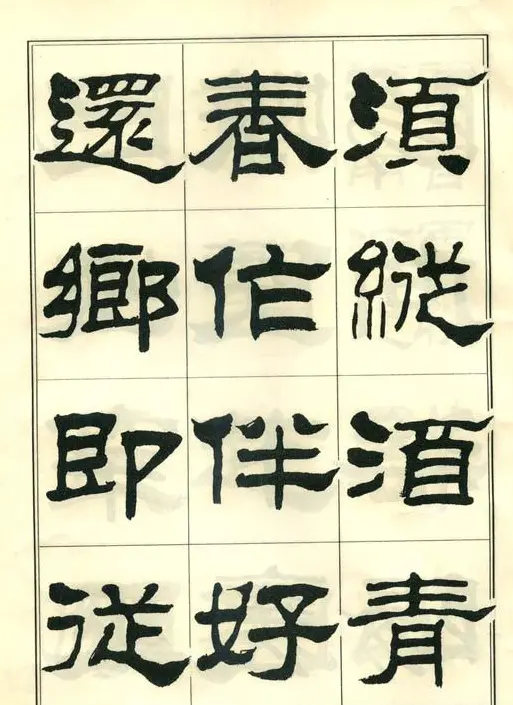 須縱酒青
春作伴好
還鄉即從